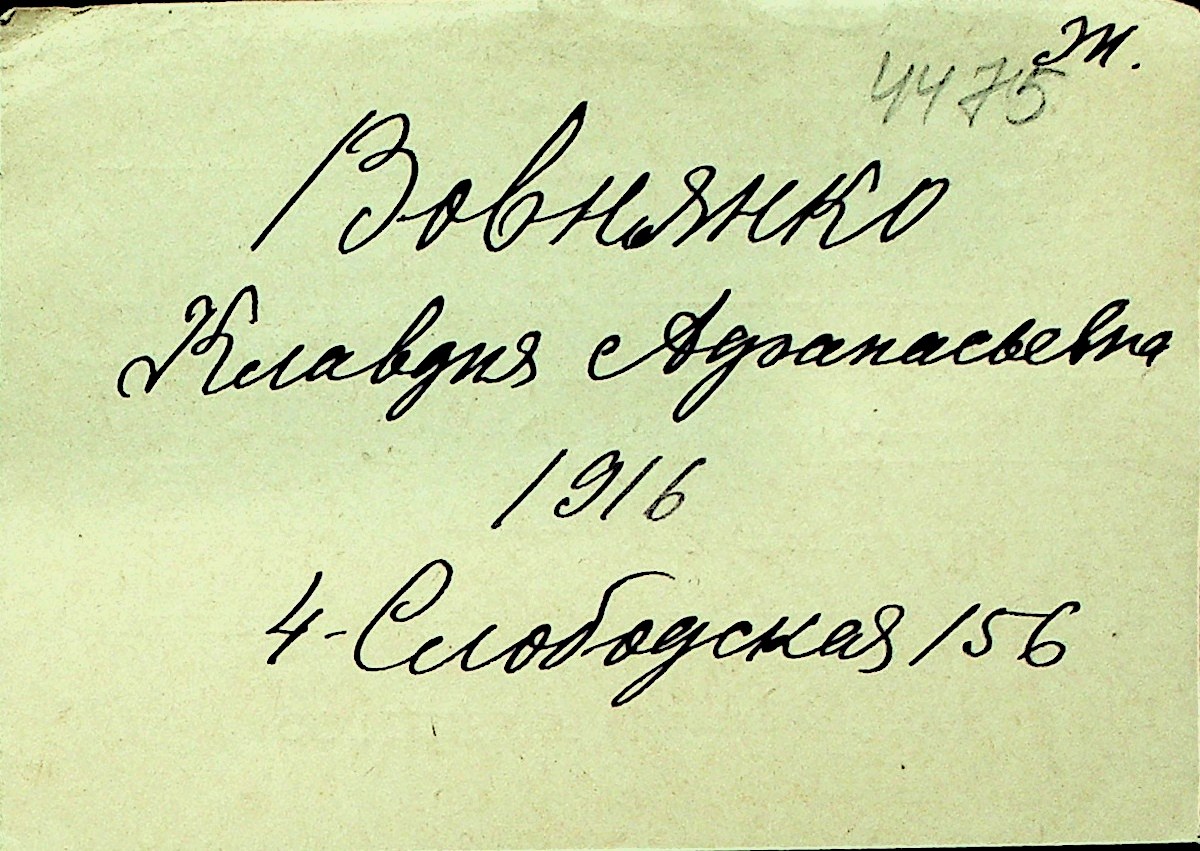 ж.
4475
Вовнянко
Клавдия Афанасьевна
1916
4-Слободская 156